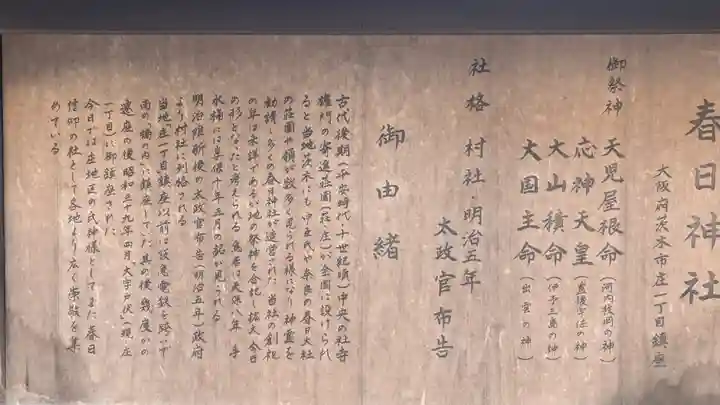 春日神社
大阪府茨木市庄一丁目鎮座
御祭神
天児屋根命（河内枚岡の神）
応神天皇（豊後宇佐の神）
大山積命（伊予三島の神）
大国主命（出雲の神）
社格 村社・明治五年
太政官布告
御由緒
古代後期（平安時代・十世紀頃）中央の社寺
権門の寄進荘園（荘・庄）が全国に設けられ
ると当地茨木にも中臣氏や奈良の春日大社
の荘園や領が数多く見られる様になり神霊を
勧請し多くの春日神社が造営された 当社の創祀
の年は未詳であるが他の祭神を合祀し拡大今日
の形となったと考えられる 鳥居は天保八年 手
水桶には享保十年三月の記が見られる
明治維新後の太政官布告（明治五年）政府
より村社に列格される
当地庄一丁目鎮座以前は阪急電鉄を跨いで
南の「橋の内」に鎮座していた其の後幾度かの
遷座の後昭和三十九年四月「大字戸伏」（現庄
一丁目）に御鎮座された
今日では庄地区の氏神様としてまた春日
信仰の社として各地より広く崇敬を集
めている